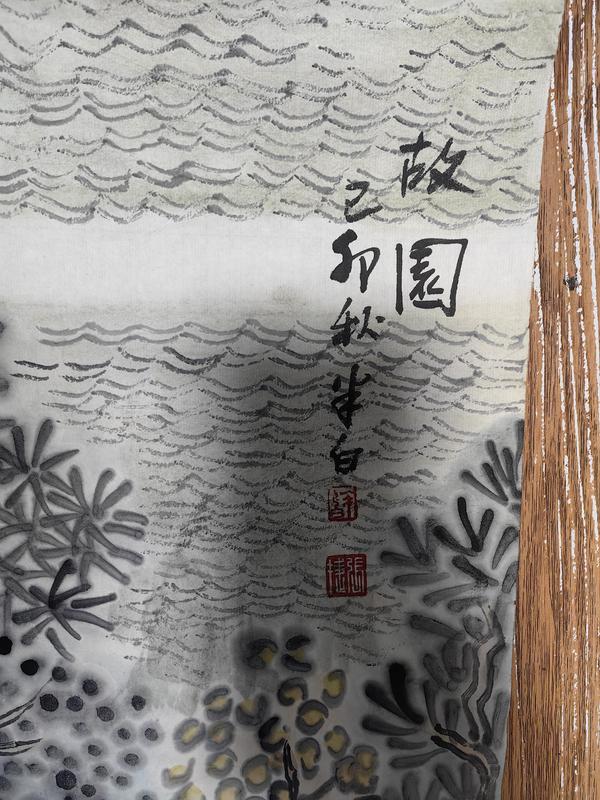 故園
己卯秋半白